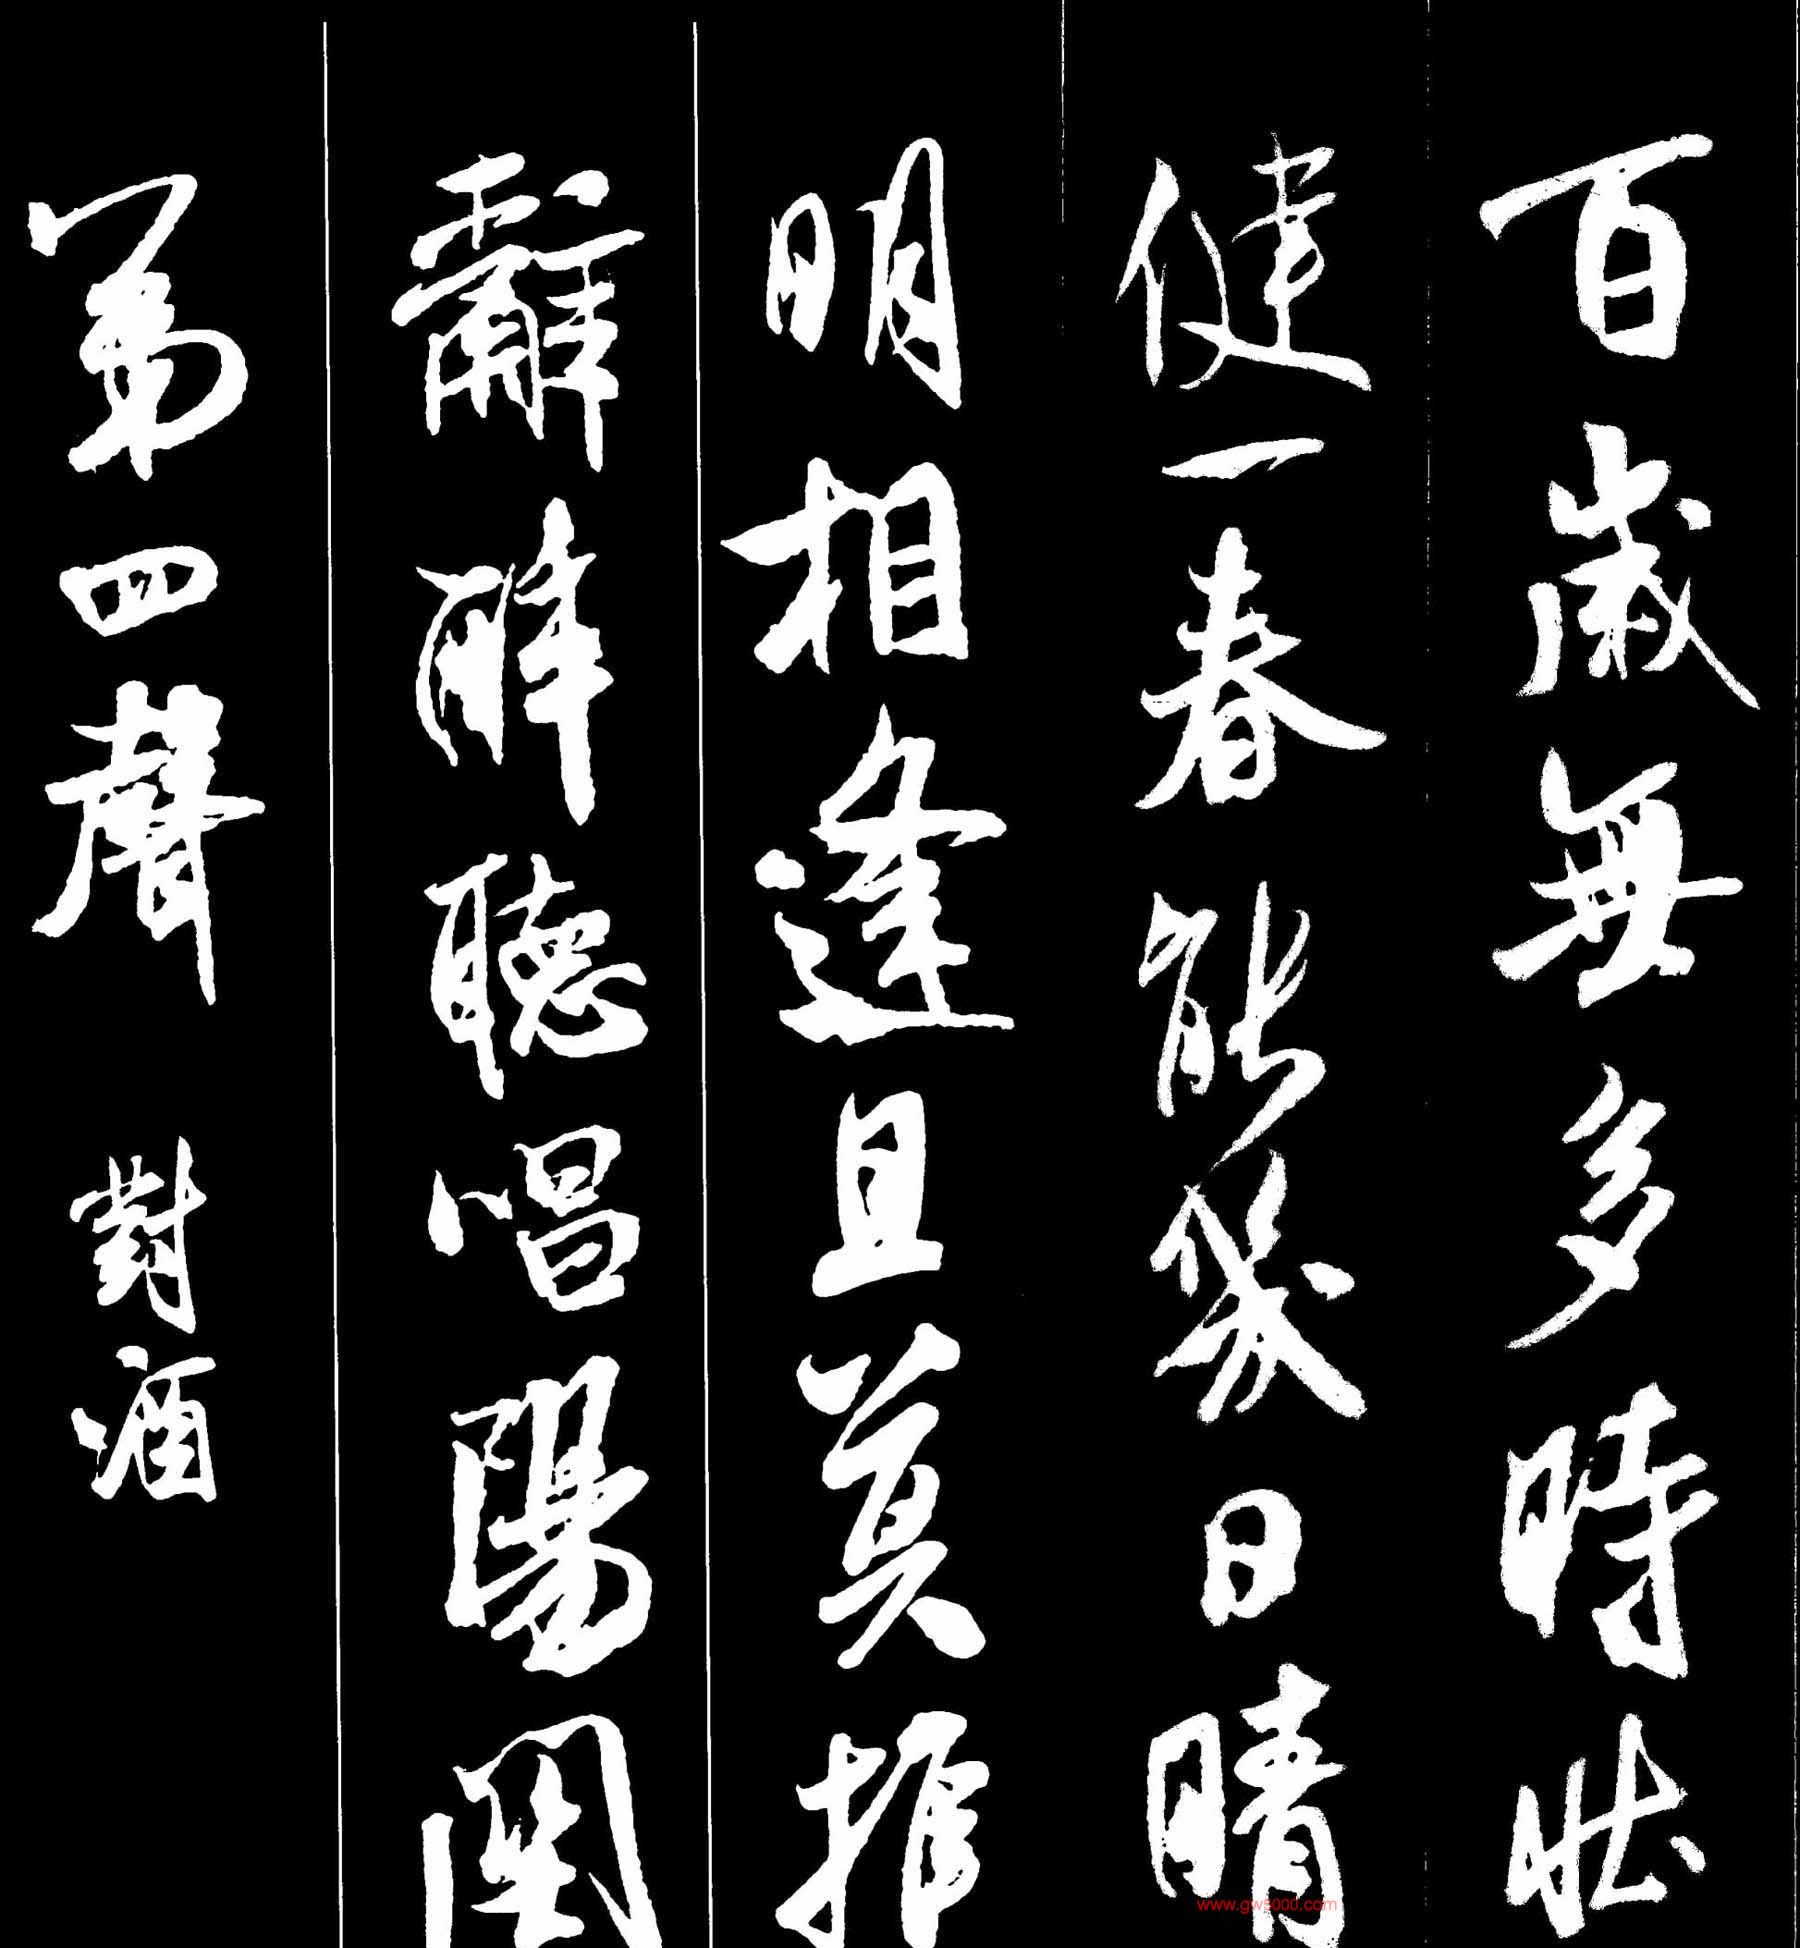 百歲無多時壮
健一春能幾日晴
明相逢且莫推
辭醉聽唱陽関
第四聲 對酒
www.gw5000.com